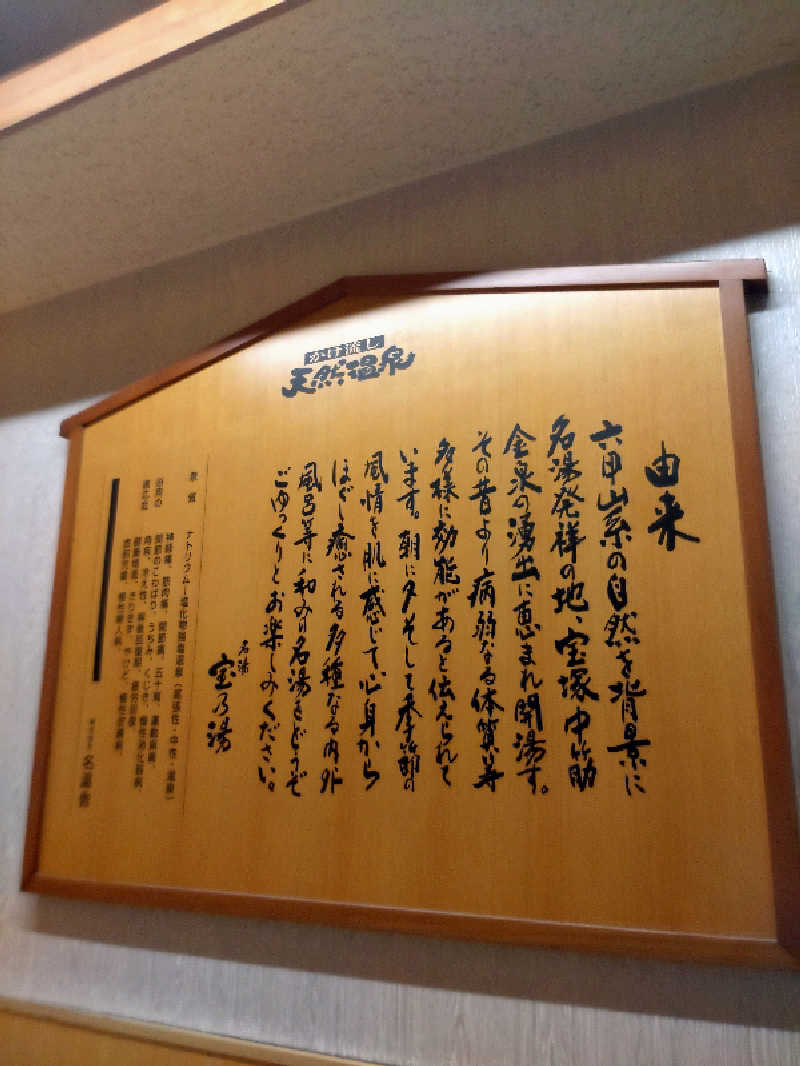 かけ流し
天然温泉
由来
六甲山系の自然を背景に
名湯発祥の地、宝塚中筋助
金泉の湧出に恵まれ開湯す。
その昔より病弱なる体質等
多様に効能があると伝えられて
います。朝に夕そして季節の
風情を肌に感じて、心身から
ほぐし癒される多種なる内外
風呂等に和み名湯をどうぞ
ごゆっくりとお楽しみください。
名湯
宝乃湯
泉質 ナトリウム-塩化物強塩温泉(高張性・中性・温泉)
浴用の
適応症
神経痛、筋肉痛、関節痛、五十肩、運動麻痺、
関節のこわばり、うちみ、くじき、慢性消化器病、
痔疾、冷え性、病後回復期、疲労回復、
健康増進、きりきず、やけど、慢性皮膚病、
虚弱児童、慢性婦人病、